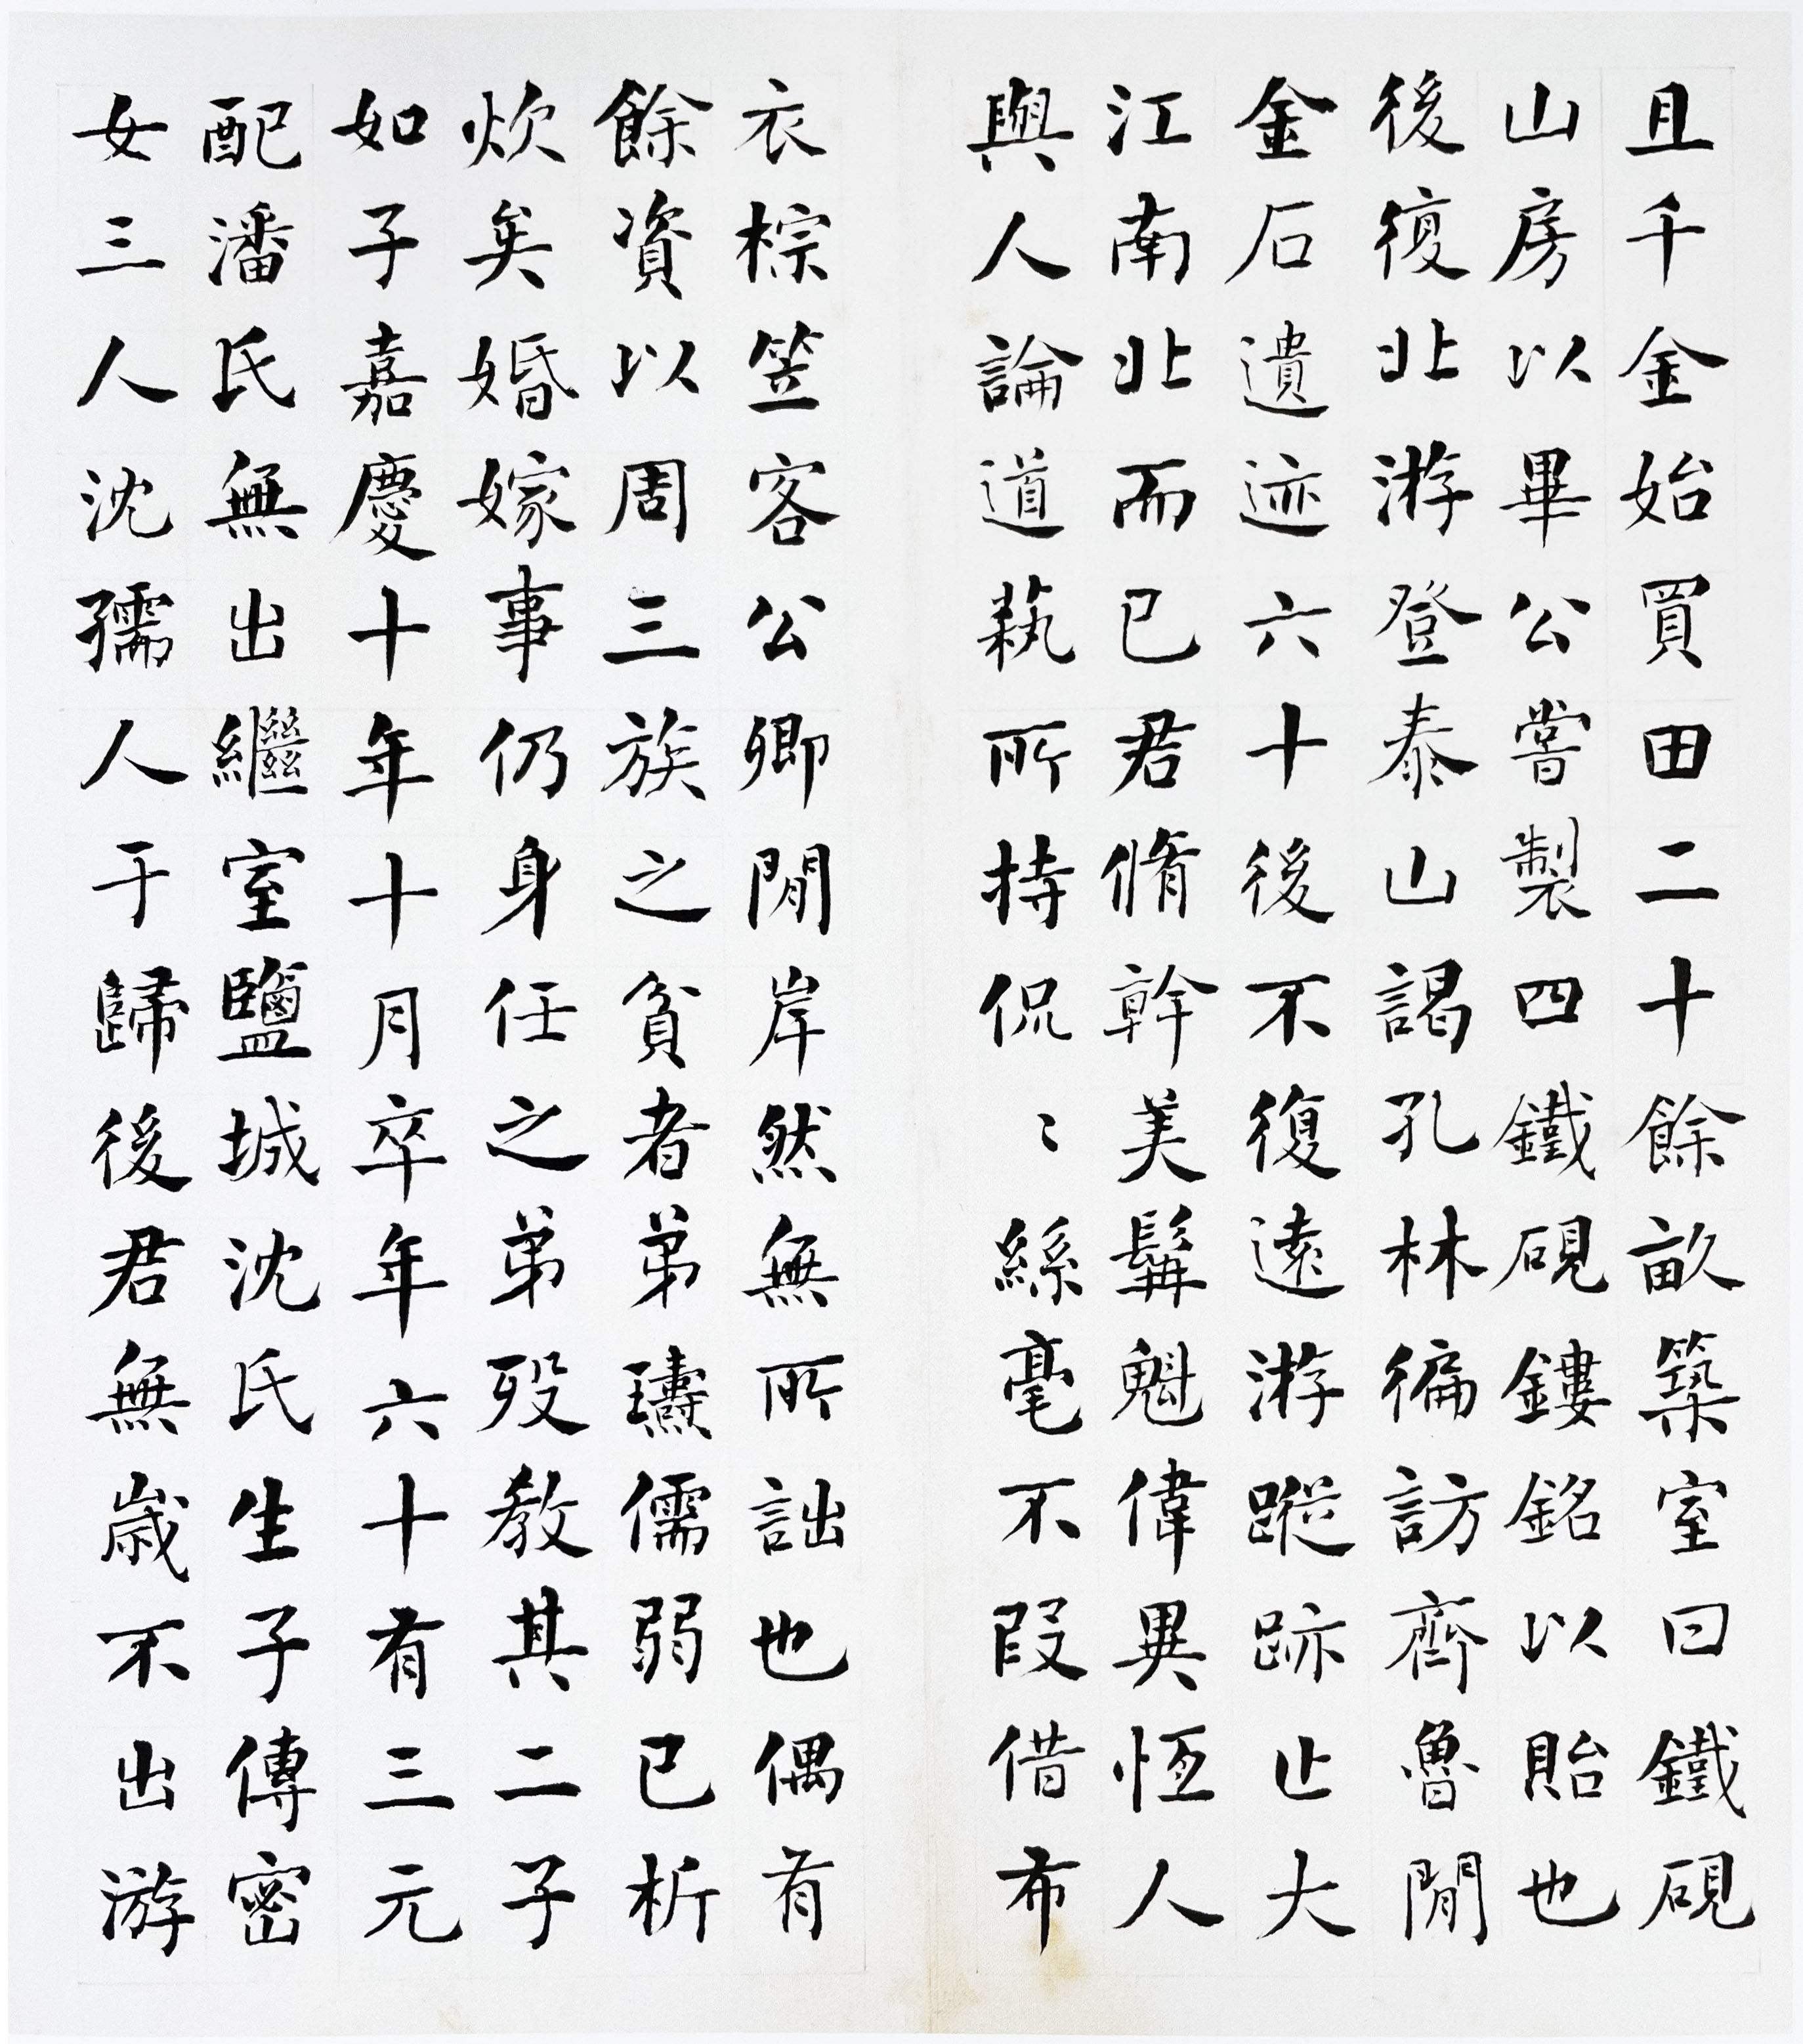 且千金始買田二十餘畝築室曰鐵硯
山房以畢公嘗製四鐵硯鏤銘以貽也
後復北游登泰山謁孔林徧訪齊魯閒
金石遺迹六十後不復遠游蹤跡止大
江南北而已君脩幹美髯魁偉異恆人
與人論道埶所持侃〻絲毫不叚借布
衣棕笠客公卿閒岸然無所詘也偶有
餘資以周三族之貧者弟璹儒弱已析
炊矣婚嫁事仍身任之弟歿教其二子
如子嘉慶十年十月卒年六十有三元
配潘氏無出繼室鹽城沈氏生子傳密
女三人沈孺人于歸後君無歲不出游